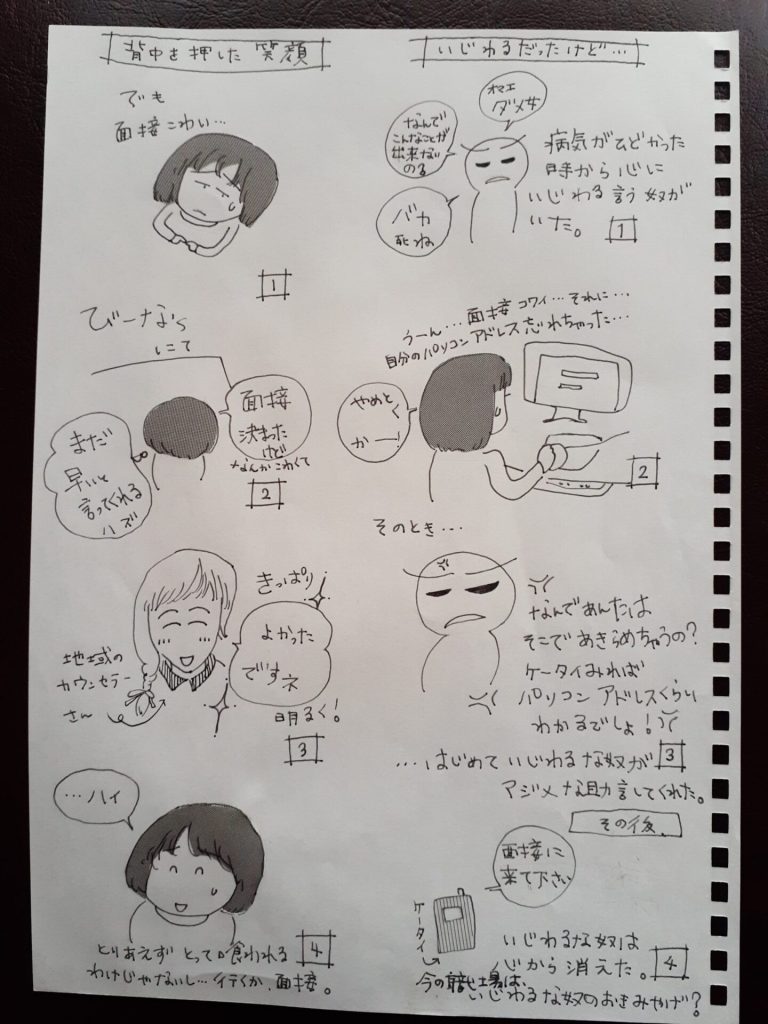 いじわるだったけど…
オマエ
ダメ女
なんで
こんなことが
出来ない
のる
バカ
死ね
病気がひどかった
時から心に
いじわる言う奴が
いた。
1
うーん…面接コワイ…それに…
自分のパソコンアドレス忘れちゃった…
やめとく
かー!
2
そのとき…
なんであんたは
そこであきらめちゃうの?
ケータイみれば
パソコンアドレスくらい
わかるでしょ!
…はじめていじわるな奴が
3
アジメな助言してくれた。
その後、
面接に
来て下さい
ケータイ
いじわるな奴は
心から消えた。
4
今の職場は、
いじわるな奴のおきみやげ?
背中を押した笑顔
でも
面接こわい…
1
びーなら
しこて
面接
決まった
けど
なんかこわくて
まだ
早いと
言ってくれる
ハズ
2
きっぱり
よかった
ですネ
明るく!
地域の
カウンセラー
さん
3
…ハイ
とりあえずとって食われる
4
わけじゃないし…行くか、面接。